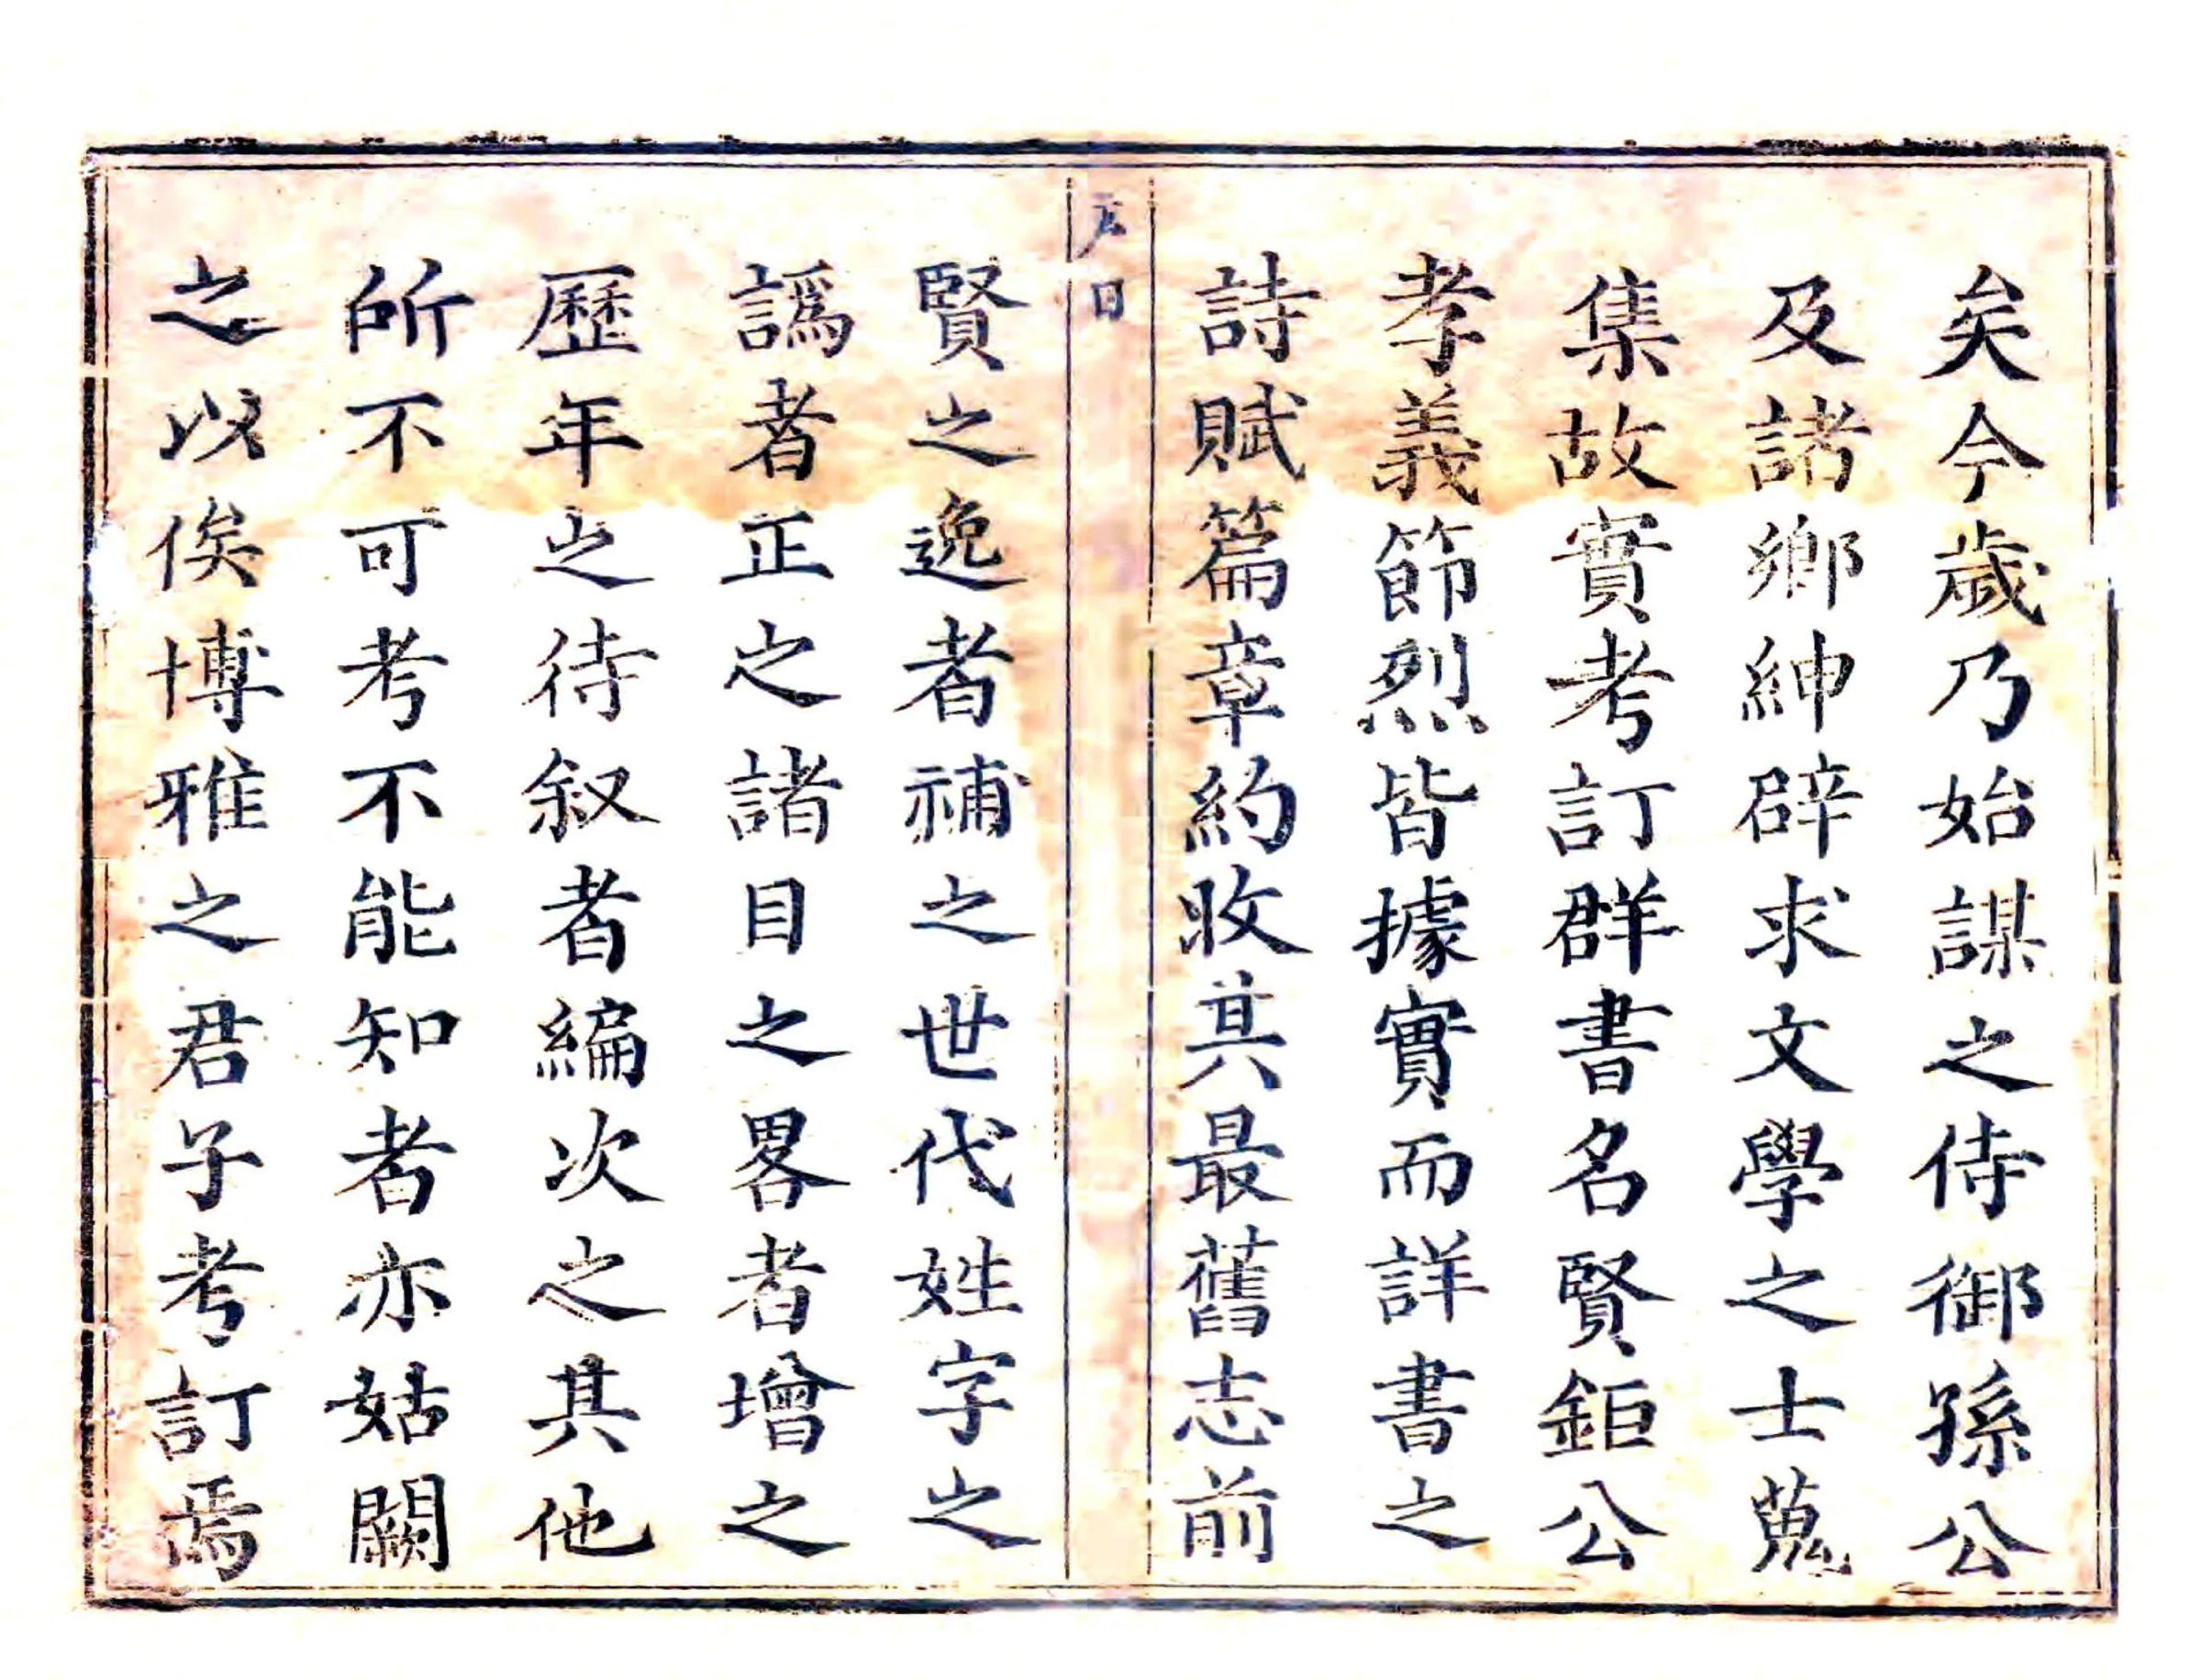 矣今歲乃始謀之侍御孫公
及諸鄉紳辟求文學之士蒐
集故實考訂群書名賢鉅公
孝義節烈皆據實而詳書之
詩賦篇章約收其最舊志前
賢之逸者補之世代姓字之
譌者正之諸目之畧者增之
歷年之待叙者編次之其他
所不可考不能知者亦姑闕
之以俟博雅之君子考訂焉